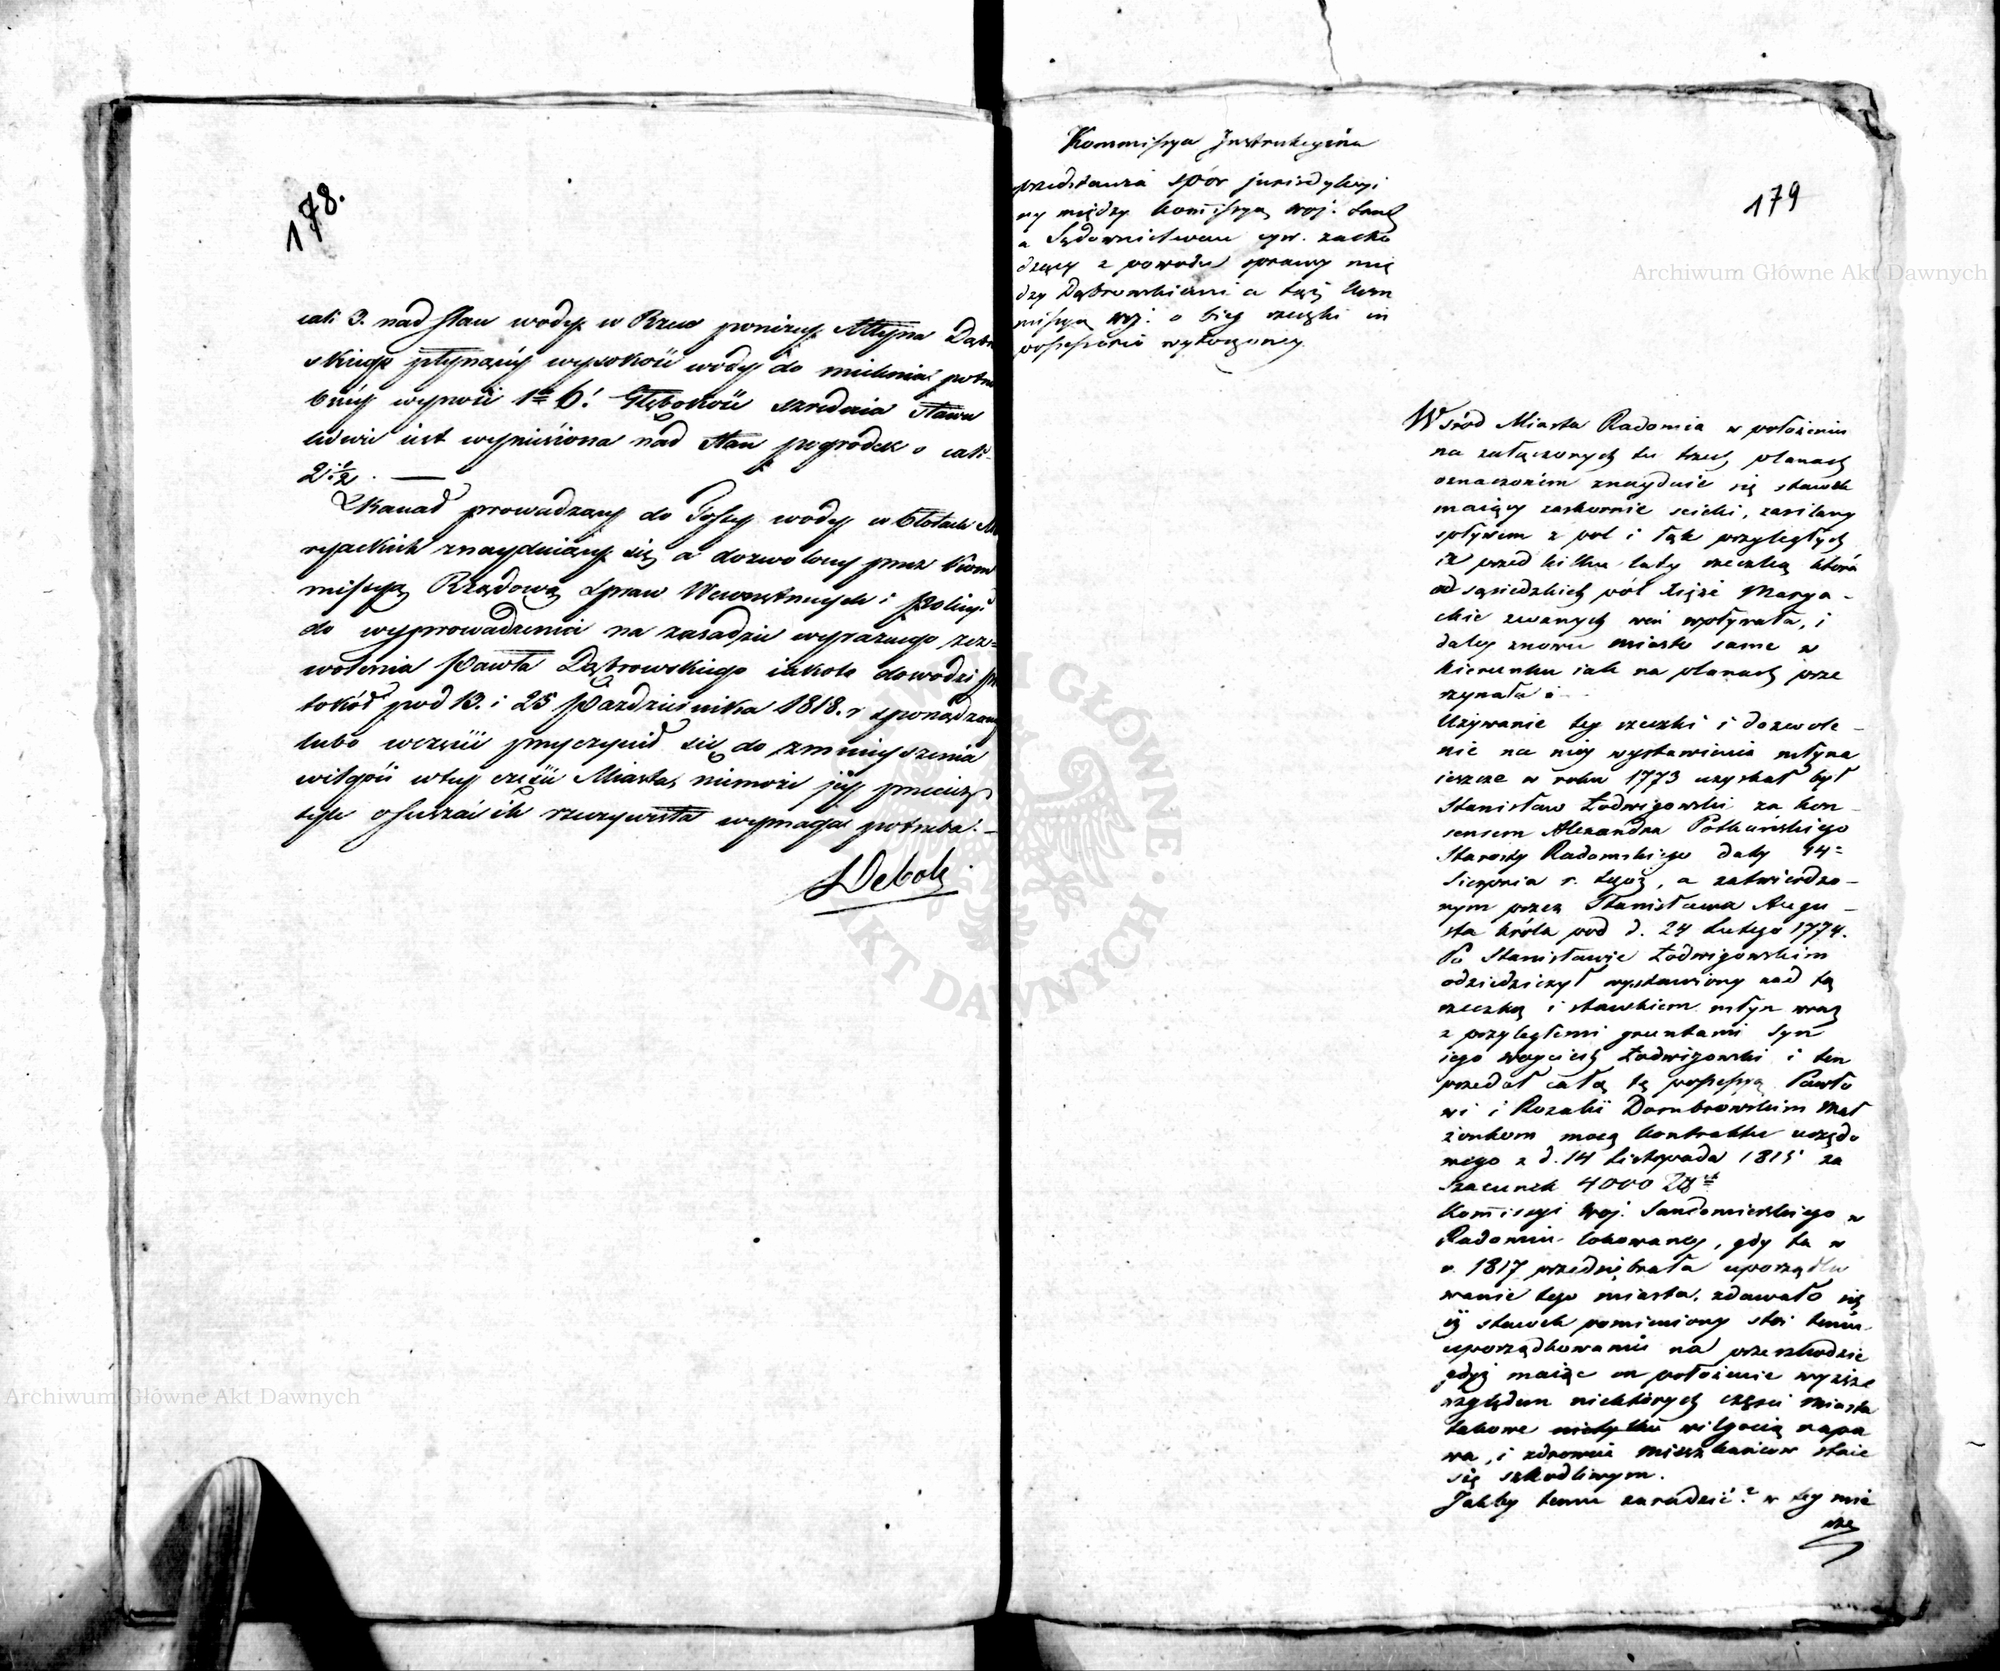 178.
cali 3. nad stan wody w Rzece poniżey Młyna Dąbro
skiego płynącey wysokość wody do mielenia potrze
bney wynosi 1° 6! Głębokość szrednia stawu
iest wyniesiona nad stan pogrodek o cali
2 1/2. —
Kanał prowadzący do Fossy wody w błotach Ma
ryackich znayduiący się a dozwolony przez Kom
missyą Rządową Spraw Wewnętrznych i Policyi
do wyprowadzenia na zasadzie wyraznego zez=
wolenia Pawła Dąbrowskiego iakoto dowodzi pro
tokół pod 13. i 25 Października 1818. r sporządzony
lubo wczęści przyczynił się do zmnieyszenia
wilgoci wtey części Miasta, niemoże jey przecież
tyle osuszać ile rzeczywista wymaga potrzeba. —
Deboli
Archiwum Główne Akt Dawnych
179
Archiwum Główne Akt Dawnych
Kommissya Instrukcyina
przedstawia spór jurisdykcyi
ny między Kommissyą woj. Sand
a Sądownictwem cyw. zacho
dzący z powodu sprawy mię
dzy Dąbrowskiemi a tąż Kom
missyą woj. o bieg rzeczki in
possessorio wytoczoney.
Wśród Miasta Radomia w położeniu
na załączonych tu trzech planach
oznaczonem znayduie się stawek
maiący zaskornie scieki, zasilany
spływem z pol i łąk przyległych
iż przed kilku laty rzeczką która
od sąsiedzkich pól Xięże Marya-
ckie zwanych weń wpływała, i
daley znowu miasto same w
kierunku iak na planach prze
rzynała.
Używanie tey rzeczki i dozwole-
nie na niey wystawienia młyna
ieszcze w roku 1773 uzyskał był
Stanisław Łodwigowski za kon-
sensem Alexandra Potkańskiego
Starosty Radomskiego daty 14=
Sierpnia r. tegoż, a zatwierdzo-
nym przez Stanisława Augu-
sta króla pod d. 24 Lutego 1774.
Po Stanisławie Łodwigowskim
odziedziczył wystawiony nad tą
rzeczką i stawkiem młyn wraz
z przyległemi gruntami Syn
iego Woyciech Łodwigowski i ten
przedał całą tę possessyą Pawło
wi i Rozalii Dombrowskim Mał
żonkom mocą kontraktu urzędo
wego z d. 14 Listopada 1815 za
Szacunek 4000 Zł
Kommissyi Woj. Sandomierskiego w
Radomiu lokowaney, gdy ta w
r. 1817 przedsiębrała uporządko
wanie tego miasta, zdawało się
iż stawek pomieniony stoi temu
uporządkowaniu na przeszkodzie
gdyż maiąc on położenie wyższe
względem niektórych części miasta
takowe wilgocią napa
wa, i zdrowiu mieszkańców staie
się szkodliwym.
Jakby temu zaradzić? w tey mie
rze